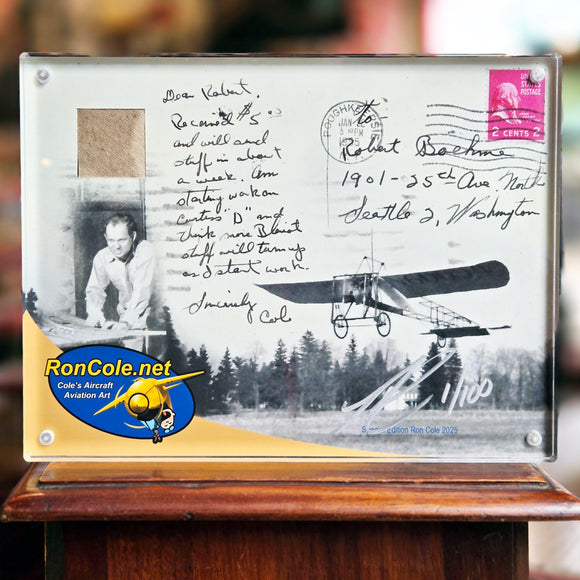 Dear Robert.
Received $5.00
and will send
stuff in about
a week. Am
starting work on
curtiss "D" and
think more Bleriot
stuff will turn up
and start work.
Sincerely
Cole
POUGHKEEPSIE
JAN
5 30 PM
UNITED
STATES
POSTAGE
2 CENTS 2
To
Robert Boehme
1901-25th Ave. North
Seattle 2, Washington
RonCole.net
Cole's Aircraft
Aviation Art
1/100
Edition Ron Cole 2025